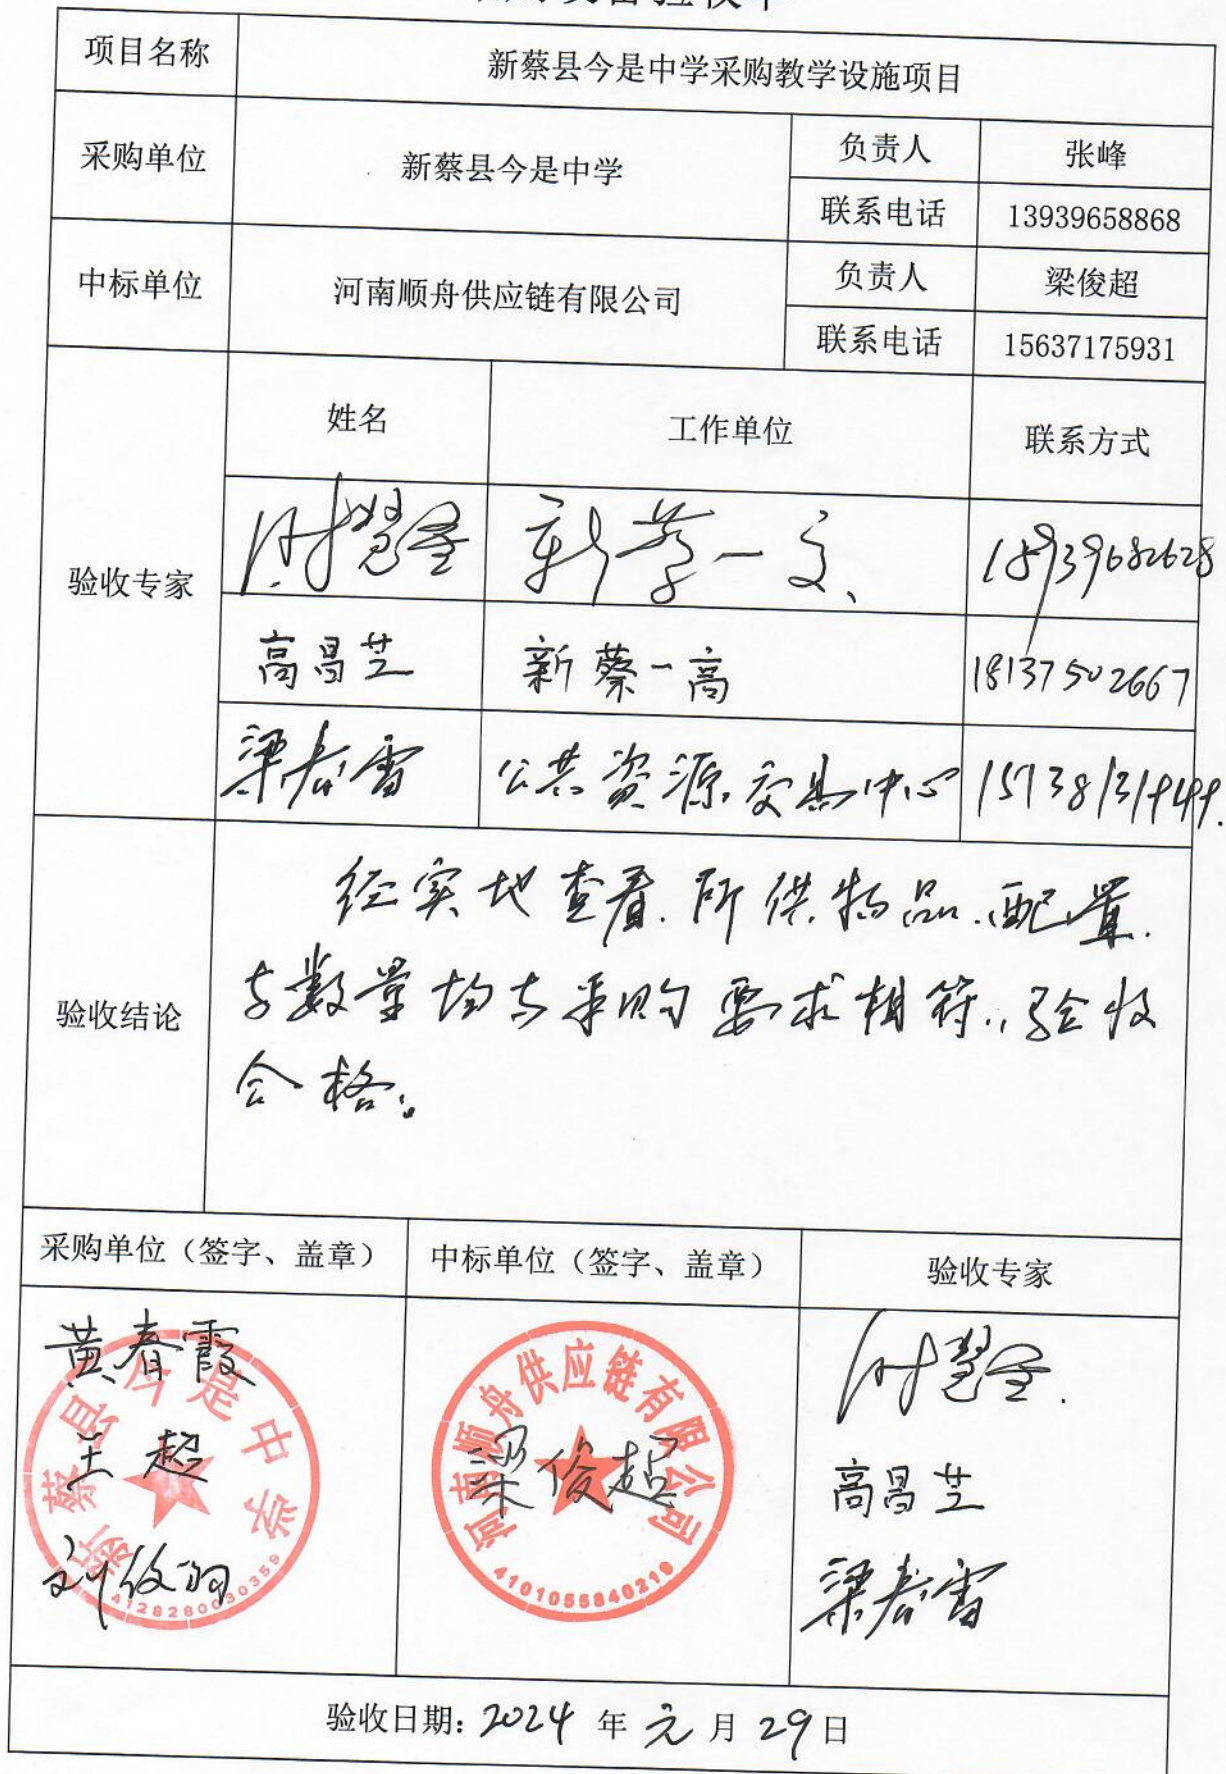 项目名称
新蔡县今是中学采购教学设施项目
采购单位
新蔡县今是中学
负责人
张峰
联系电话
13939658868
中标单位
河南顺舟供应链有限公司
负责人
梁俊超
联系电话
15637175931
验收专家
姓名
工作单位
联系方式
时慧
新蔡一
18939682628
高昌芝
新蔡一高
18137502667
梁春雷
公共资源交易中心
经实地查看.所供物品.配置.
验收结论
与数量均与采购要求相符,验收
合格。
采购单位（签字、盖章）
中标单位（签字、盖章）
验收专家
黄春霞
王超
新蔡县今是中学
4128280030359
河南顺舟供应链有限公司
梁俊超
4101055840219
时慧
高昌芝
梁春雷
验收日期：2024年元月29日